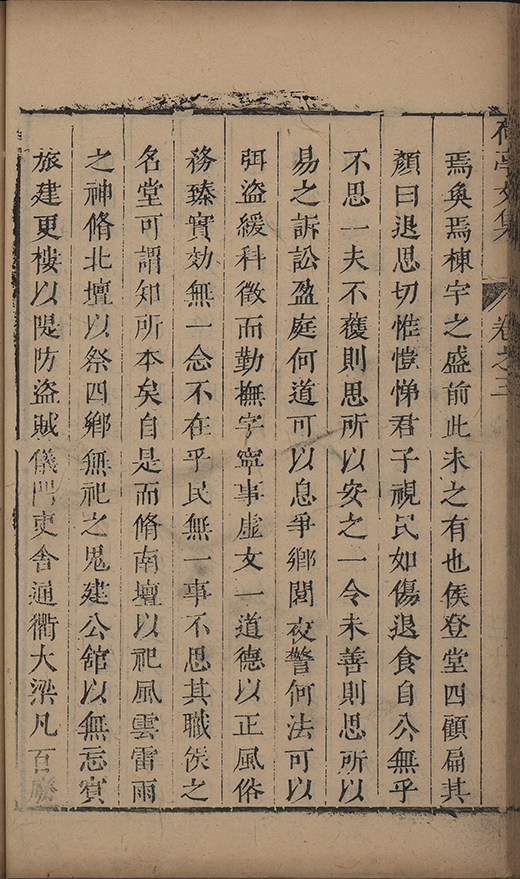 亭文集 卷之三
焉奐焉棟宇之盛前此未之有也侯登堂四顧扁其
顏曰退思切惟愷悌君子視民如傷退食自公無乎
不思一夫不獲則思所以安之一令未善則思所以
易之訴訟盈庭何道可以息爭鄉閭夜警何法可以
弭盜緩科徵而勤撫字寧事虛文一道德以正風俗
務臻實効無一念不在乎民無一事不思其職矦之
名堂可謂知所本矣自是而脩南壇以祀風雲雷雨
之神脩北壇以祭四鄉無祀之鬼建公舘以無忘賓
旅建更樓以隄防盜賊儀門吏舍通衢大梁凡百